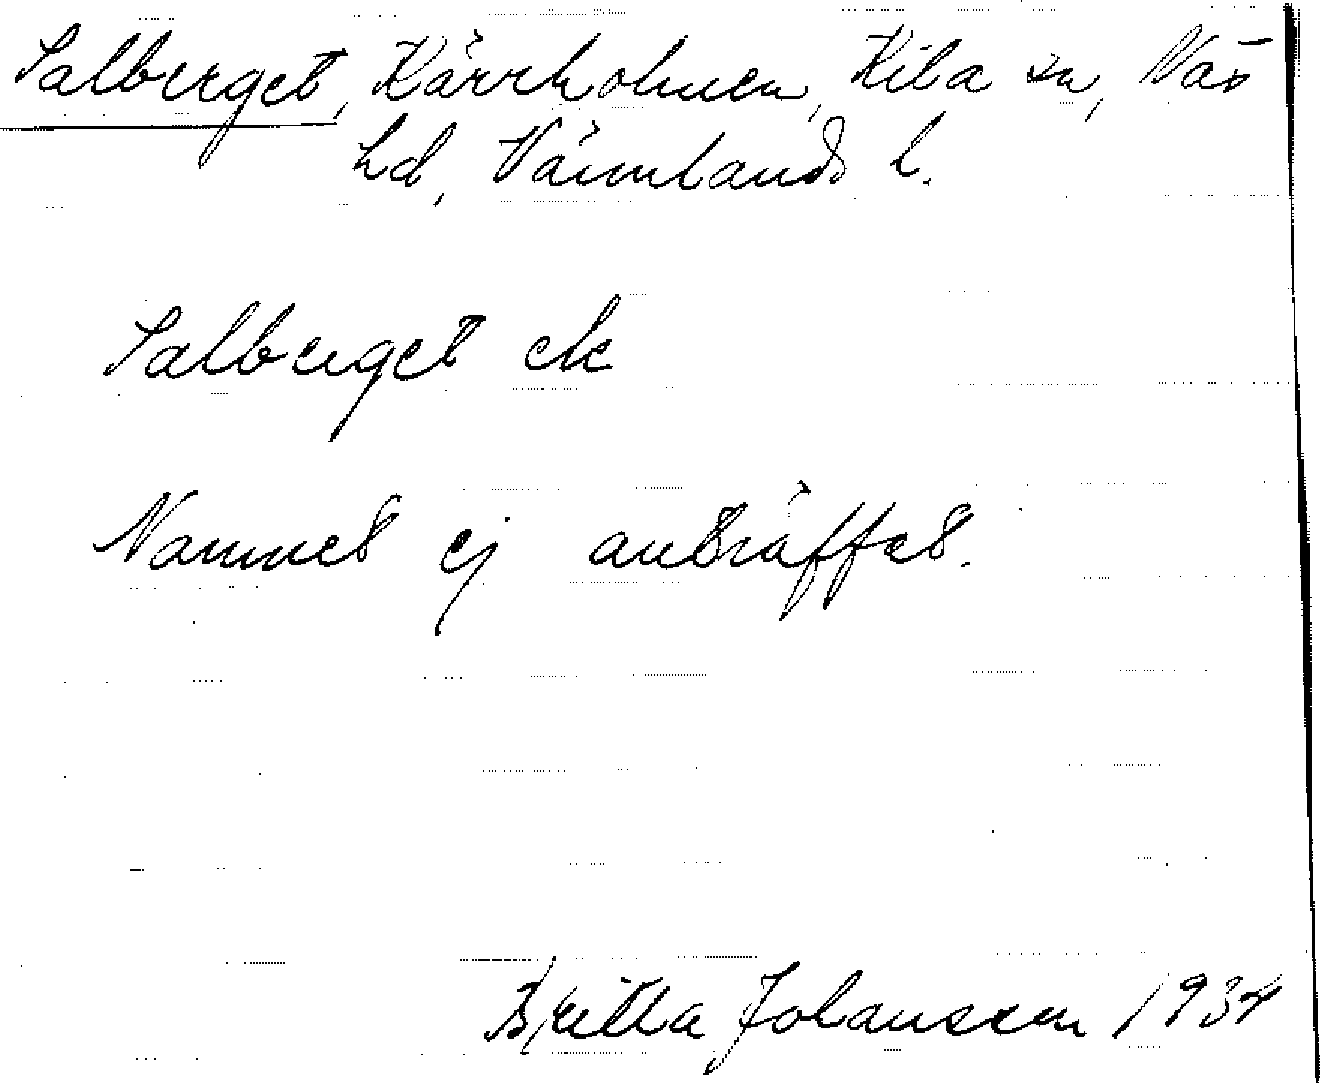 Salberget, Kärrholmen, Kila sn, Näs
hd, Värmlands l.
Salberget ek
Namnet ej anträffat.
Britta Johansson 1934